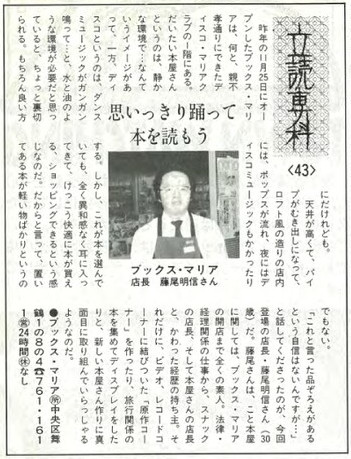 立読専科
〈43〉
思いっきり踊って
本を読もう
昨年の11月25日にオー
プンしたブックス・マリ
アは、何と、親不
孝通りにできたデ
ィスコ・マリアク
ラブの1階にある。
だいたい本屋さん
というのは、静か
な環境で…なんて
いうイメージがあ
って、一方、ディ
スコというのは、ダンス
ミュージックがガンガン
鳴ってて…と、水と油のよ
うな環境が必要だと思っ
ていると、ちょっと裏切
られる。もちろん良い方
にだけれども。
天井が高くて、パイ
プがむき出しになって、
ロフト風の造りの店内
には、ポップスが流れ、夜にはデ
ィスコミュージックもかかったり
する。しかし、これが本を選んで
いても、全く異和感なく耳に入っ
てきて、けっこう快適に本が買え
る、ショッピングできるという感
じなのだ。だからと言って、置い
てある本が軽い物ばかりというの
ブックス・マリア
店長 藤尾明信さん
でもない。
「これと言った品ぞろえがある
という自信はないんですが…」
と話してくださったのが、今回
登場の店長・藤尾明信さん(30
歳)だ。藤尾さんは、こと本屋
に関しては、ブックス・マリア
の開店まで全くの素人。法律・
経理関係の仕事から、スナック
の店長、そして本屋さんの店長
と、かわった経歴の持ち主。そ
れだけに、ビデオ、レコードコ
ーナーに結びついた「原作コー
ナー」を作ったり、旅行関係の
本を集めてディスプレイをした
りと、新しい本屋さん作りに真
面目に取り組んでいらっしゃる
ようなのだ。
●ブックス・マリア㊟中央区舞
鶴1の8の4☎761・161
1㊡24時間㊡なし